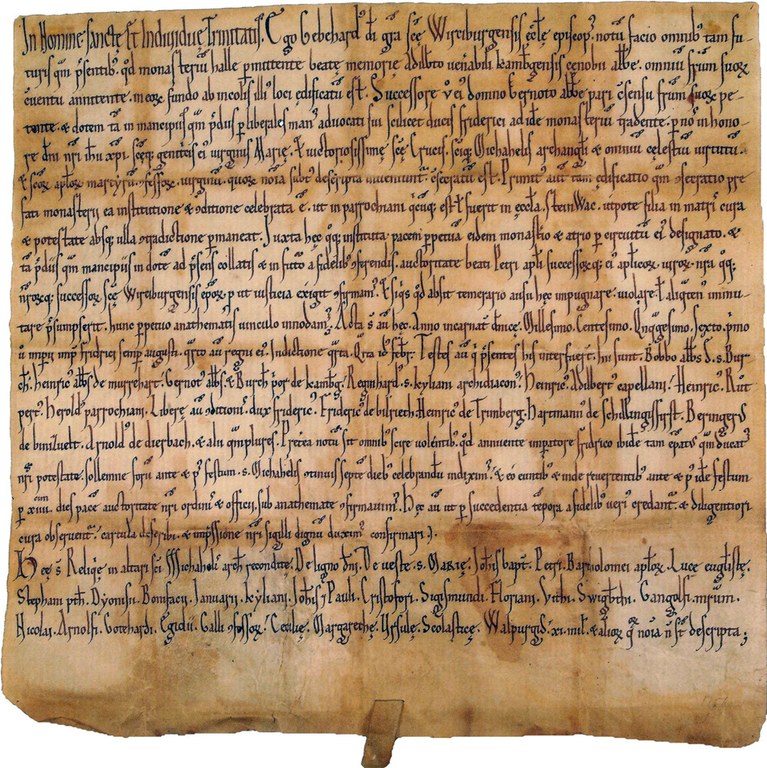 In Nomine sanctę Et Individuę Trinitatis. Ego Gebehard' di gra scę Wirciburgensis eccłe episcop' notu facio omnib' tam fu-
turis qua psentib' qd monasteriu halle pmittente beate memorie Adilbto venabili kambgensis cenobii abbe. omniu frum suoȝ
eventu annitente. in eoȝ fundo ab incolis illi' loci edificatu est. Successore v ei' domno Gernoto abbe pari csensu frum suoȝ pe-
tente. & dotem ta in mancipiis qm pdiis p liberales man' advocati sui scilicet ducis friderici ad ide monasteriu tradente. p no in hono-
re dni nri ihu xpi. sceq; genitricis ei' virginis Marię. & victoriosissime scę Crucis. sciq; Michahelis archangli & omniu celestiu virtutu.
& scoȝ aploȝ martyru. fessoȝ. virginu. quoȝ noia subt' descripta inveniunt'. csecratu est. Primit' aut tam edificatio qm csecratio pre
fati monasterii ea institutione & cditione celebrata e. ut in parrochiani est t fuerit in eccla. SteinWac. utpote filia in matris cura
& potestate absq; ulla ctradictione pmaneat. Juxta hec qq; instituta pacem ppetua eidem monastio & atrio p circuitu ei' designato. &
ta pdiis qm mancipiis in dote ad psens collatis & in futuro a fidelib' cferendis. auctoritate beati Petri apli successoȝ q; ei' aplicoȝ viroȝ. nra qq;
nroȝq; successoȝ scę Wirciburgensis epoȝ. put iusticia exigit cfirmam'. & siqs qd absit temerario ausu hec impugnare. violare. t aligten' inmu-
tare psumpserit. hunc ppetuo anathematis vinculo innodam'. Acta s au hec. Anno incarnat dnice. Millesimo. Centesimo. Qnqgesimo. Sexto. pmo
v imperii imp friderici semp augusti. qrto au regni ei'. Indictione qrta. Qrta id' febr. Testes au q psentes his interfuert. hii sunt. Bobbo abbs d. s. Bur-
ch. Heinric' abbs de murrehart. Gernot' abbs. & Burch' por de kambg. Reginhard'. s. kyliani archidiacon'. Heinric'. Adilbert' capellani. Heinric'. Ruot
pert'. herold' parrochiani. Liberę au cditionis. dux frideric'. Frideric' de bilrieth. Heinric' de Trimberg. Hartmann' de Schillingisfirst. Beringer'
de . Arnold' de bierbach. & alii qmplures. Pretea notu sit omnib' scire volentib' qd annuente imperatore fridrico ibide tam epat' qm ducat'
nri potestate. sollemne foru ante & p' festum. s. Michahelis ctinuis septe dieb' celebrandu indixim'. & eo euntib' & inde revertentib' ante & p' ide festum
p xiiii. dies pace auctoritate nri ordinis & officii. sub anathemate cfirmavim'. Hec au ut p succedentia tepora a fidelib' veri' credant'. & diligentiori
cura observent'. cartula describi. & impssione nri sigilli dignu duxim' confirmari.).
Hęc s Reliqe in altari sci Michahel' arch' recondite. De ligno dni. De veste. s. Marię. Joh'is bapt'. Petri. Bartholomei aploȝ. Luce euglistę.
Stephani pth. Dyonisii. Bonifacii. Januarii. kyliani. Joh'is & Pauli. Cristofori. Sigismundi. Floriani. Vithi. Swigbthi. Gangolfi. mrum.
Nicolai. Arnolfi. Gotehardi. Egidii. Galli cfessoȝ. Cecilię. Margarethę. Ursulę. Scolasticę. Walpurgis. xi. mil'. & alioȝ qȝ noia n st descripta;